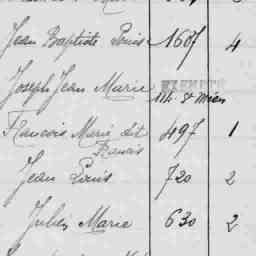 Jean Baptiste Louis 1687 4
Joseph Jean Marie EXEMPTÉ
Mle St Mien
François Marie dit 497 1
Francis
Jean Louis 720 2
Jules Marie 630 2